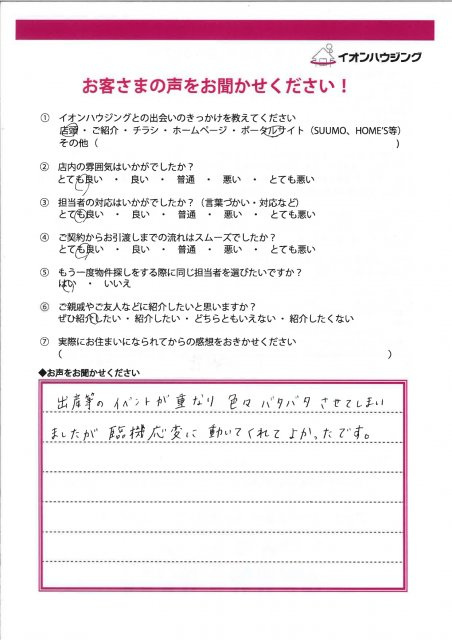 イオンハウジング
お客さまの声をお聞かせください!
① イオンハウジングとの出会いのきっかけを教えてください
店頭・ご紹介・チラシ・ホームページ・ポータルサイト(SUUMO、HOME'S等)
その他( )
② 店内の雰囲気はいかがでしたか?
とても良い ・ 良い ・ 普通 ・ 悪い ・ とても悪い
③ 担当者の対応はいかがでしたか?(言葉づかい・対応など)
とても良い ・ 良い ・ 普通 ・ 悪い ・ とても悪い
④ ご契約からお引渡しまでの流れはスムーズでしたか?
とても良い ・ 良い ・ 普通 ・ 悪い ・ とても悪い
⑤ もう一度物件探しをする際に同じ担当者を選びたいですか?
はい ・ いいえ
⑥ ご親戚やご友人などに紹介したいと思いますか?
ぜひ紹介したい・紹介したい・どちらともいえない・紹介したくない
⑦ 実際にお住まいになられてからの感想をおきかせください
( )
◆お声をお聞かせください
出産等のイベントが重なり色々バタバタさせてしまい
ましたが臨機応変に動いてくれてよかったです。